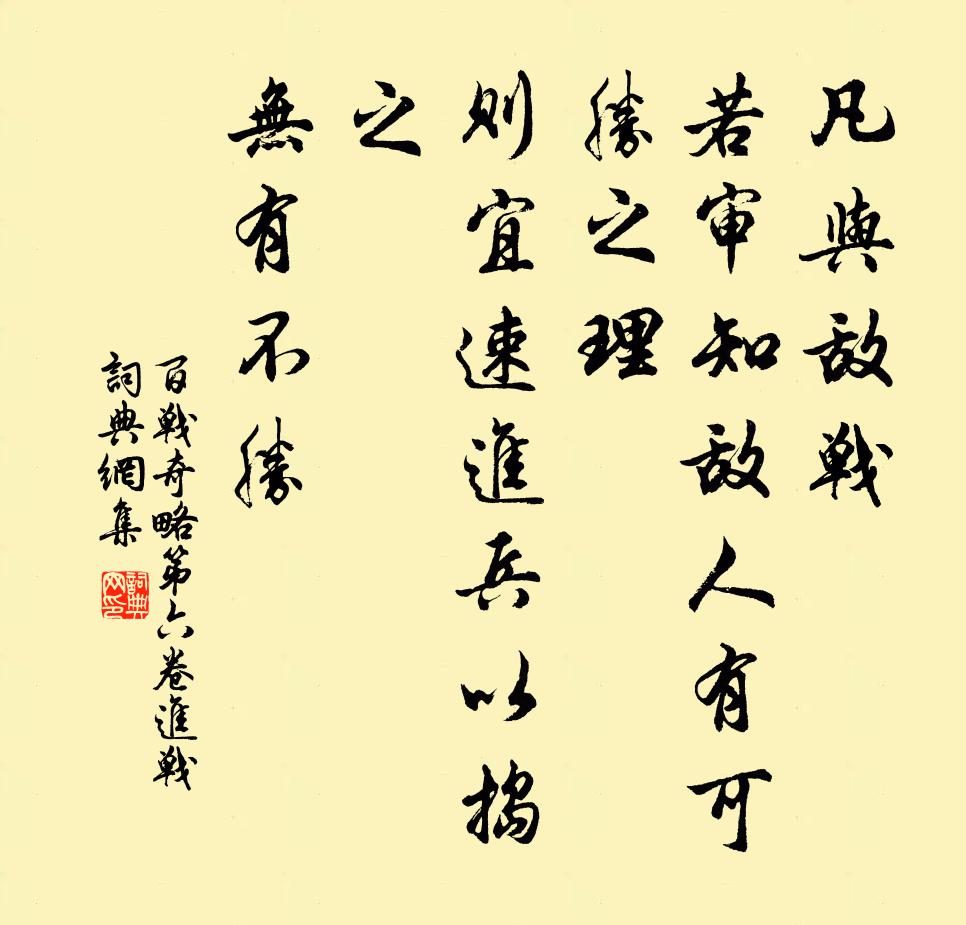 凡與敌戰
若审知敌人有可
勝之理
則宜速進兵以搗
之
無有不勝
百戰奇略第六卷進戰
詞典網集
詞典网印